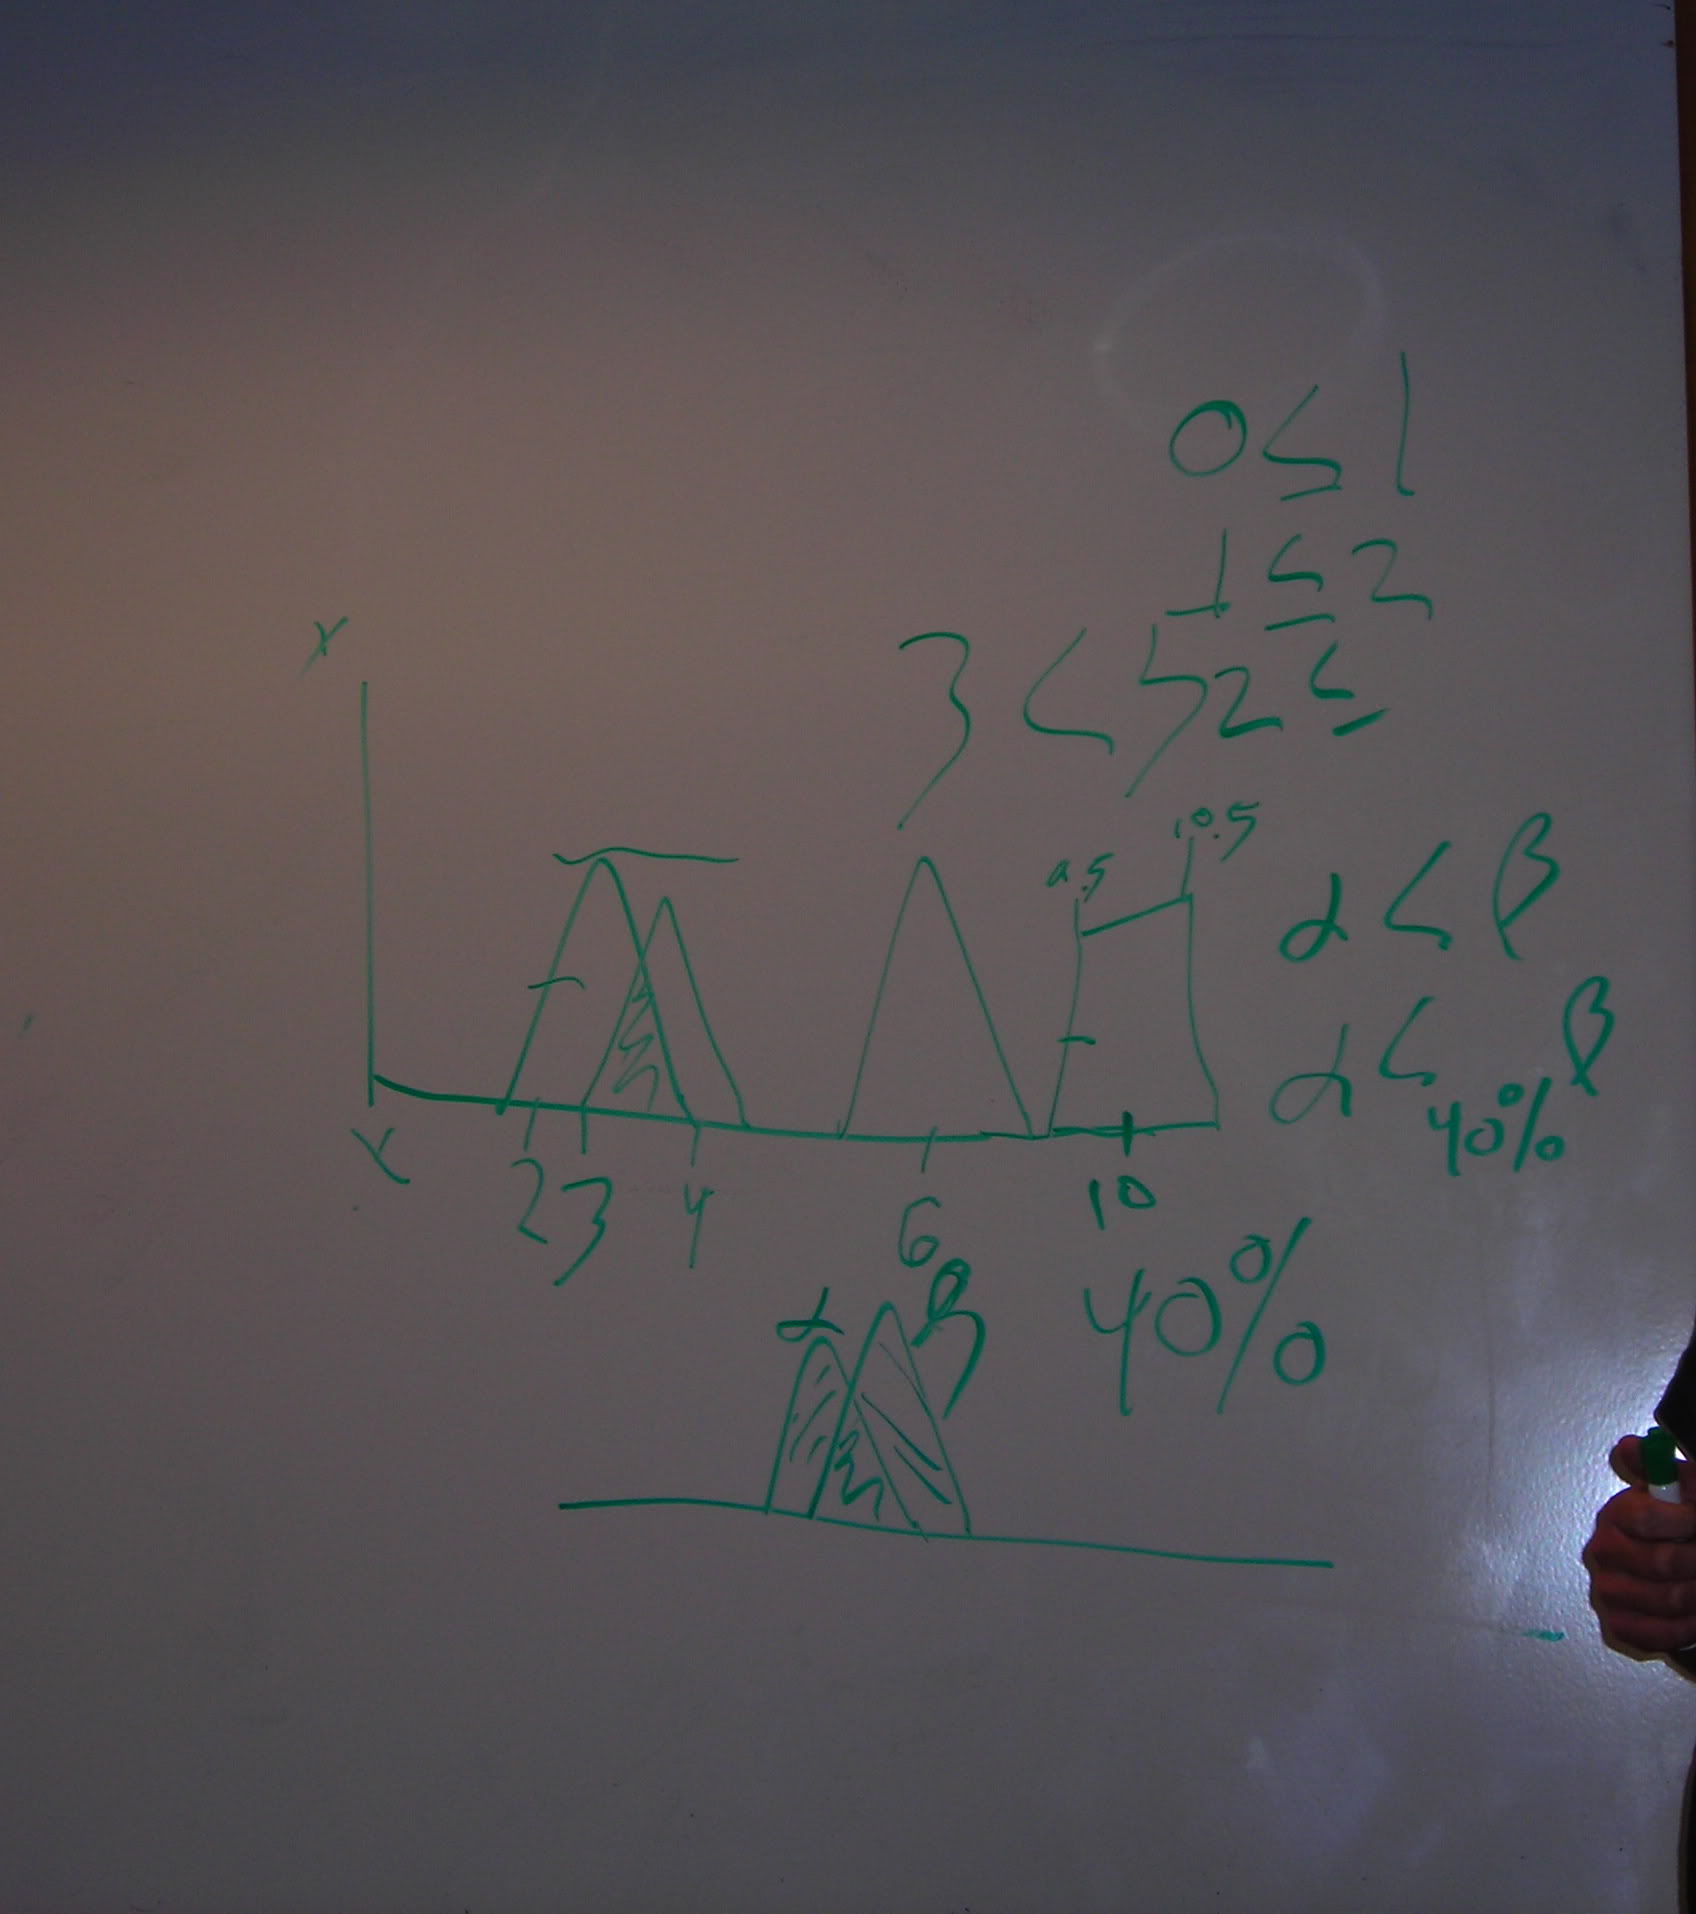 0 ≤ 1
1 ≤ 2
3 < 5
2 ≤
X
10.5
.5
α < β
α < β
40%
X
2 3 4 6 10
α β
40%